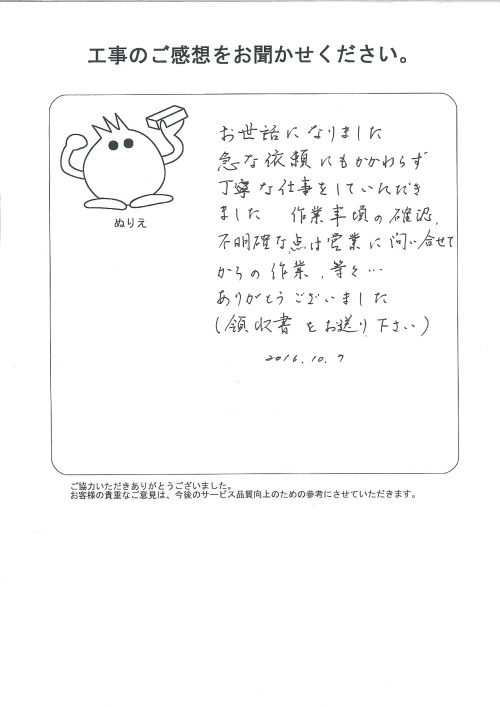 工事のご感想をお聞かせください。
お世話になりました
急な依頼にもかかわらず
丁寧な仕事をしていただき
ました 作業事項の確認、
不明確な点は営業に問い合せて
からの作業、等々…
ありがとうございました
(領収書をお送り下さい)
2016.10.7
ぬりえ
ご協力いただきありがとうございました。
お客様の貴重なご意見は、今後のサービス品質向上のための参考にさせていただきます。